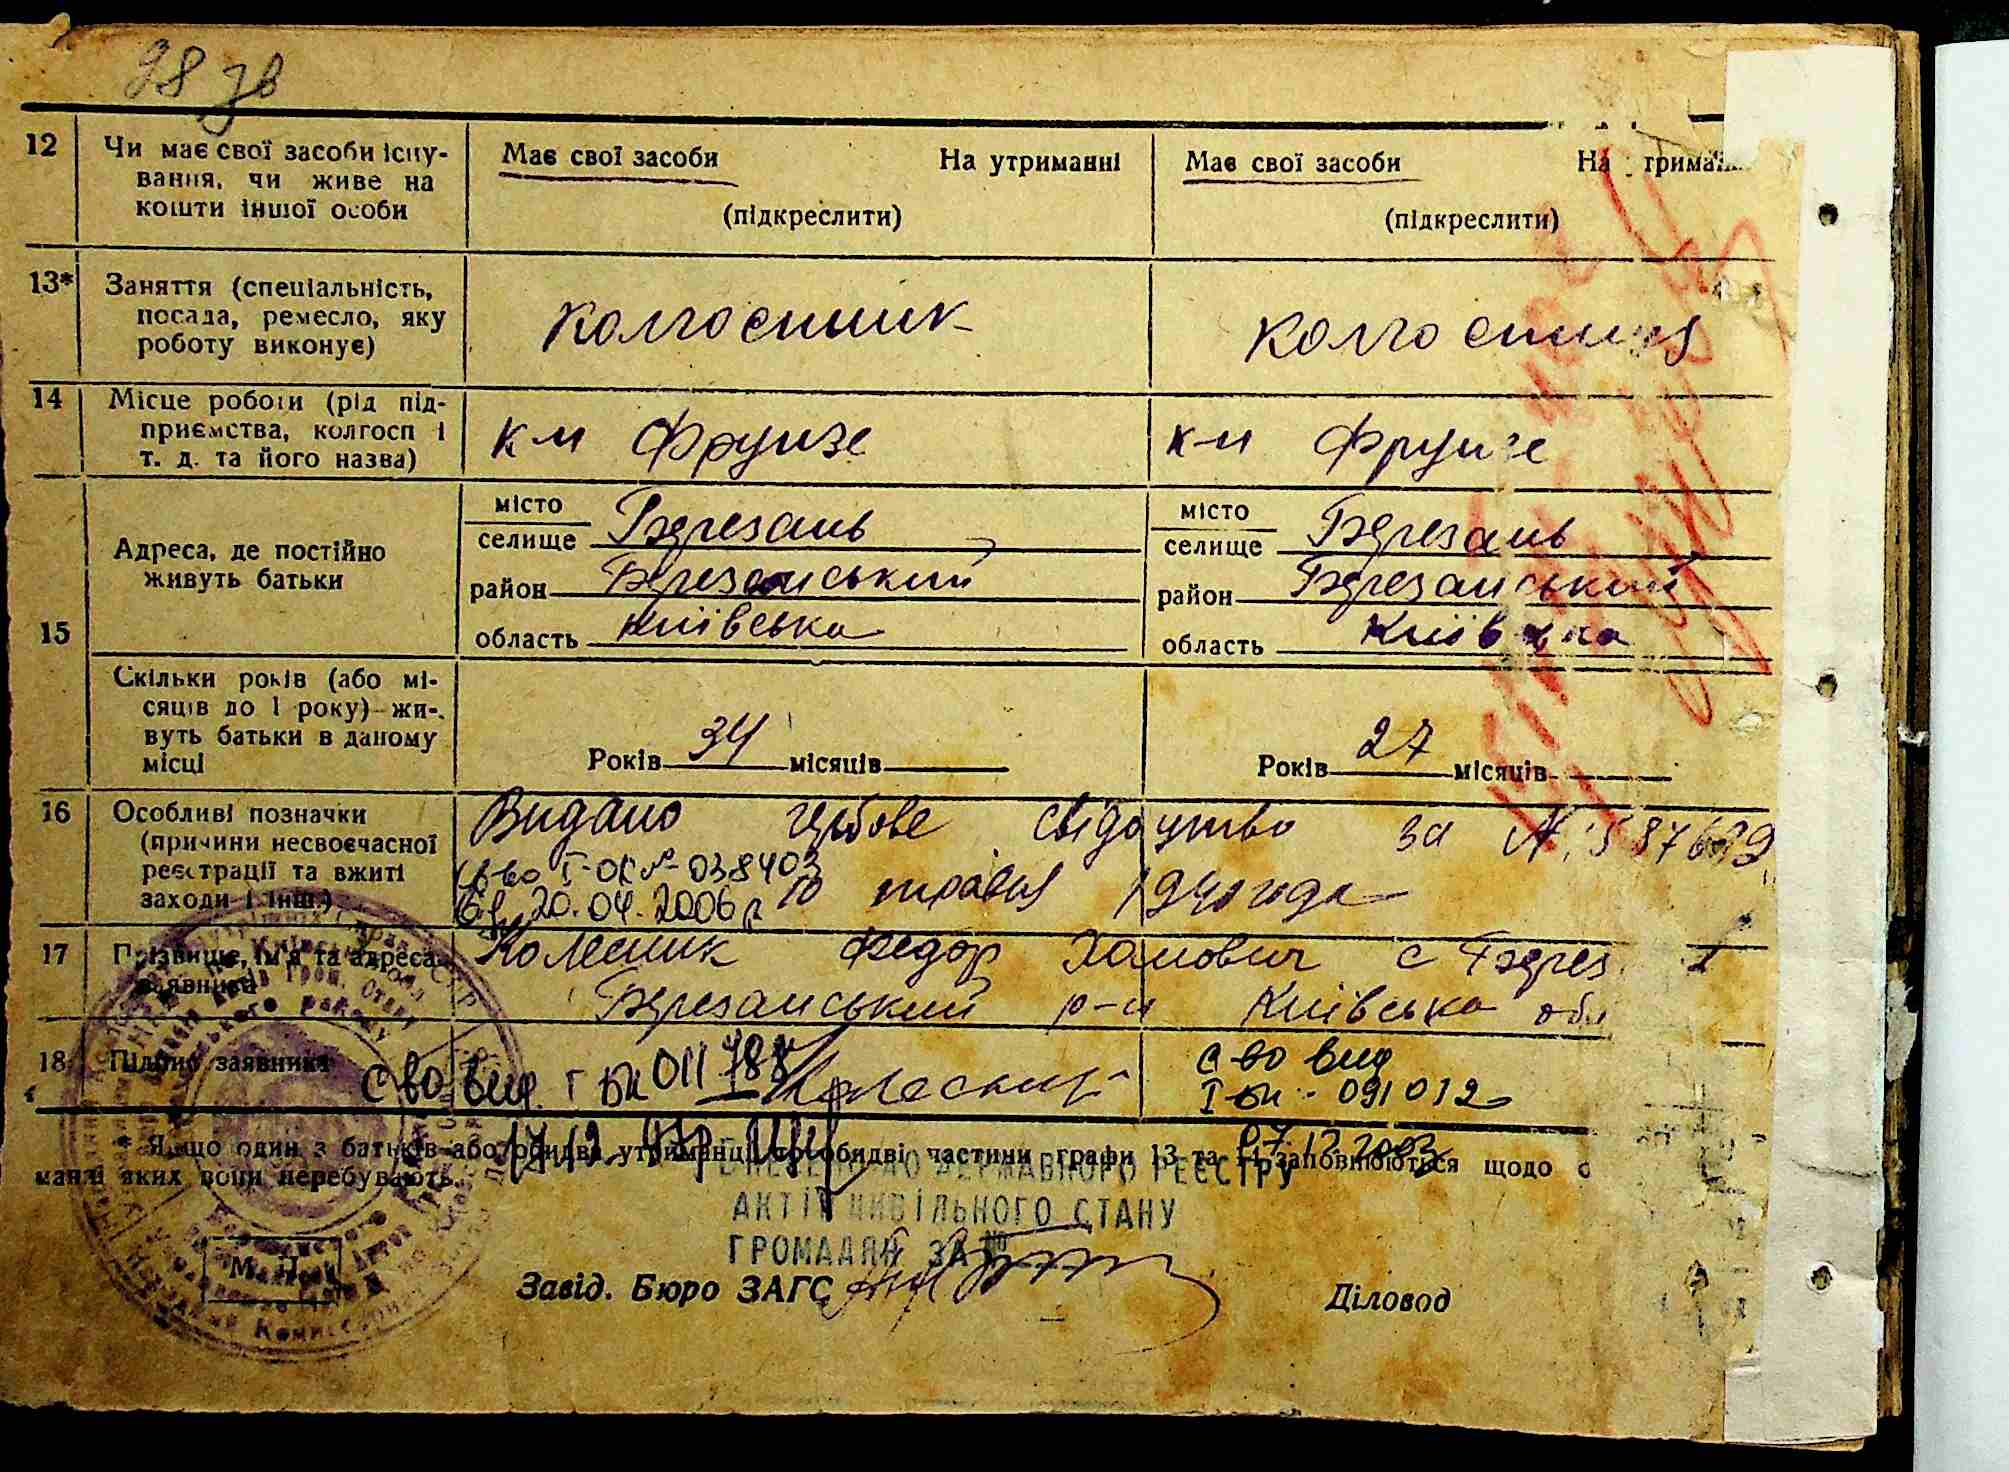 98 зв
12 Чи має свої засоби існу-
вання, чи живе на
кошти іншої особи
Має свої засоби На утриманні
(підкреслити)
Має свої засоби На утрима
(підкреслити)
13* Заняття (спеціальність,
посада, ремесло, яку
роботу виконує)
Колгоспник
Колгоспниця
14 Місце роботи (рід під-
приємства, колгосп і
т. д. та його назва)
к-м Фрунзе
к-м Фрунзе
15 Адреса, де постійно
живуть батьки
місто
селище Березань
район Березанський
область Київська
місто
селище Березань
район Березанський
область Київська
Скільки років (або мі-
сяців до 1 року) жи-
вуть батьки в даному
місці
Років 34 місяців
Років 27 місяців
16 Особливі позначки
(причини несвоєчасної
реєстрації та вжиті
заходи і інш.)
Видано гербове свідоцтво за №
С-во І-ОК № 038403
20.04.2006 р
10 травня 1940 года
17 Прізвище, ім'я та адреса
заявника
Колесник Федор Хомович с Берез
Березанський р-н Київська обл
18 Підпис заявника
с-во вид. І БК 011788
с-во вид
І-БК 091012
07.12.2003
* Якщо один з батьків або обидва утриманці, то обидві частини графи 13 та 14 заповнюються щодо о
манні яких вони перебувають.
ДО ДЕРЖАВНОГО РЕЄСТРУ
АКТІВ ЦИВІЛЬНОГО СТАНУ
ГРОМАДЯН ЗА №
М. П.
Завід. Бюро ЗАГС
Діловод